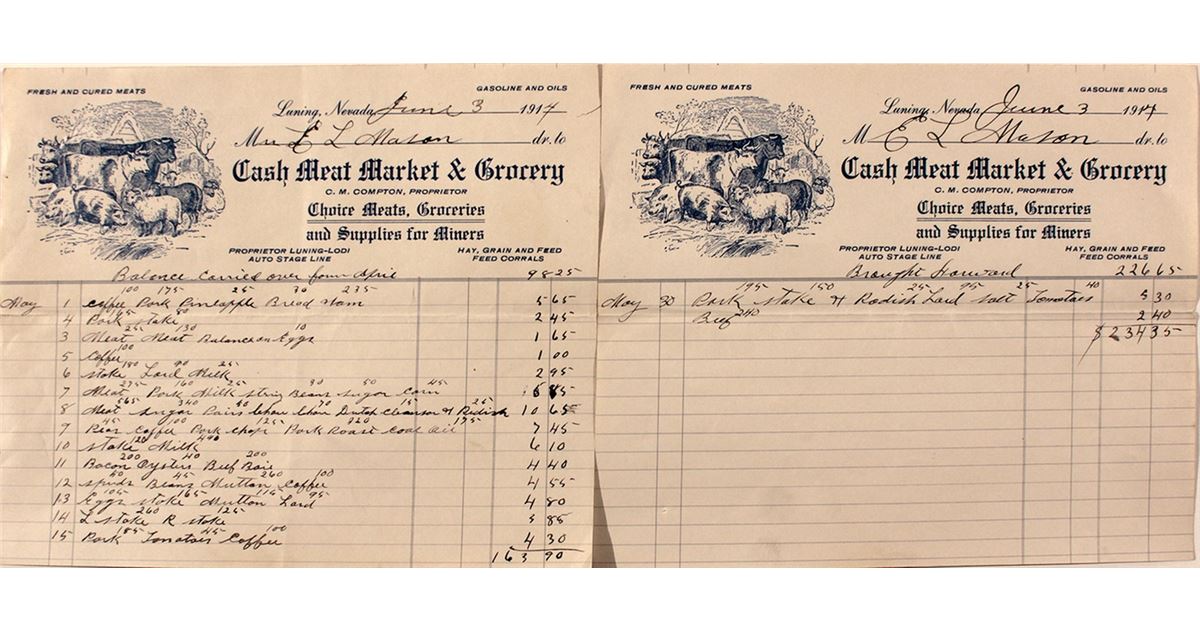 FRESH AND CURED MEATS
GASOLINE AND OILS
Luning, Nevada, June 3 1914
M E L Mason dr. to
Cash Meat Market & Grocery
C. M. COMPTON, PROPRIETOR
Choice Meats, Groceries
and Supplies for Miners
PROPRIETOR LUNING-LODI
AUTO STAGE LINE
HAY, GRAIN AND FEED
FEED CORRALS
Balance Carried over from April 98 25
100 175 25 30 235
May 1 Coffee Pork Pineapple Bread Ham 5 65
4 Pork Stake 2 45
25 130 10
3 Meat Meat Balance on Eggs 1 65
100
5 Coffee 1 00
180 90 25
6 Stake Lard Milk 2 95
275 160 25 30 50 45
7 Meat Pork Milk String Beans Sugar Corn 85
565 340 40 70 15 25
8 Meat Sugar Chow Chow Dutch Cleanser & Radish 10 65
45 100 125 320 175
9 Coffee Pork Chops Pork Roast Coal Oil 7 45
120 490
10 Stake Milk 6 10
200 40 200
11 Bacon Oysters Beef 4 40
50 45 260 100
12 Spuds Beans Mutton Coffee 4 55
105 165 115 95
13 Eggs Stake Mutton Lard 4 80
260 125
14 L Stake R Stake 3 85
185 45 100
15 Pork Tomatoes Coffee 4 30
163 90
FRESH AND CURED MEATS
GASOLINE AND OILS
Luning, Nevada, June 3 1914
M E L Mason dr. to
Cash Meat Market & Grocery
C. M. COMPTON, PROPRIETOR
Choice Meats, Groceries
and Supplies for Miners
PROPRIETOR LUNING-LODI
AUTO STAGE LINE
HAY, GRAIN AND FEED
FEED CORRALS
Brought Forward 226 65
195 150 25 95 25 40
May 30 Pork Stake & Radish Lard Salt Tomatoes 5 30
240
Beef 2 40
$ 234 35